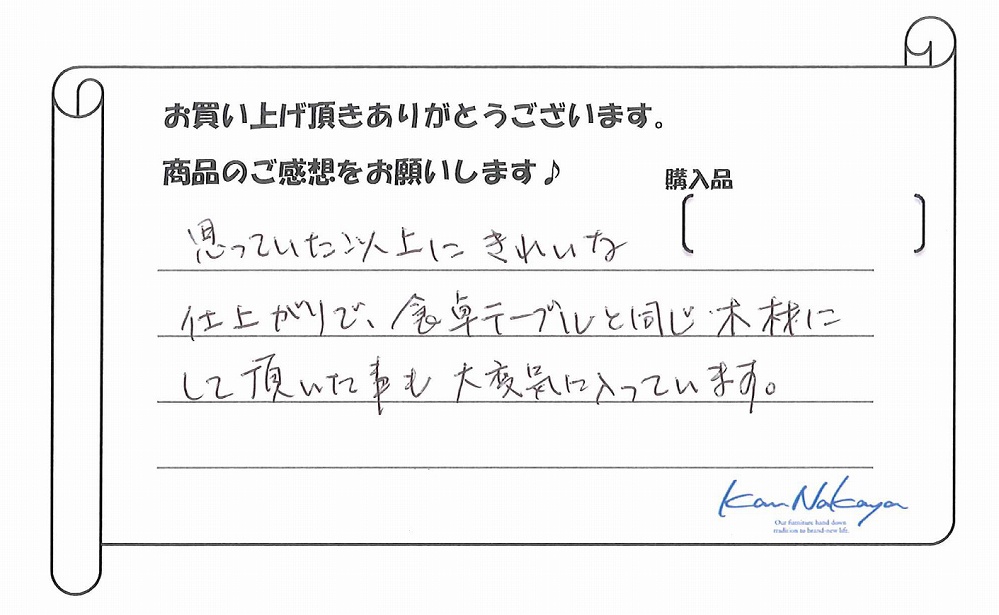 お買い上げ頂きありがとうございます。
商品のご感想をお願いします♪
購入品
思っていた以上にきれいな
仕上がりで、食卓テーブルと同じ木材に
して頂いた事も大変気に入っています。
Kan Nakaya
Our furniture hand down
tradition to brand-new life.